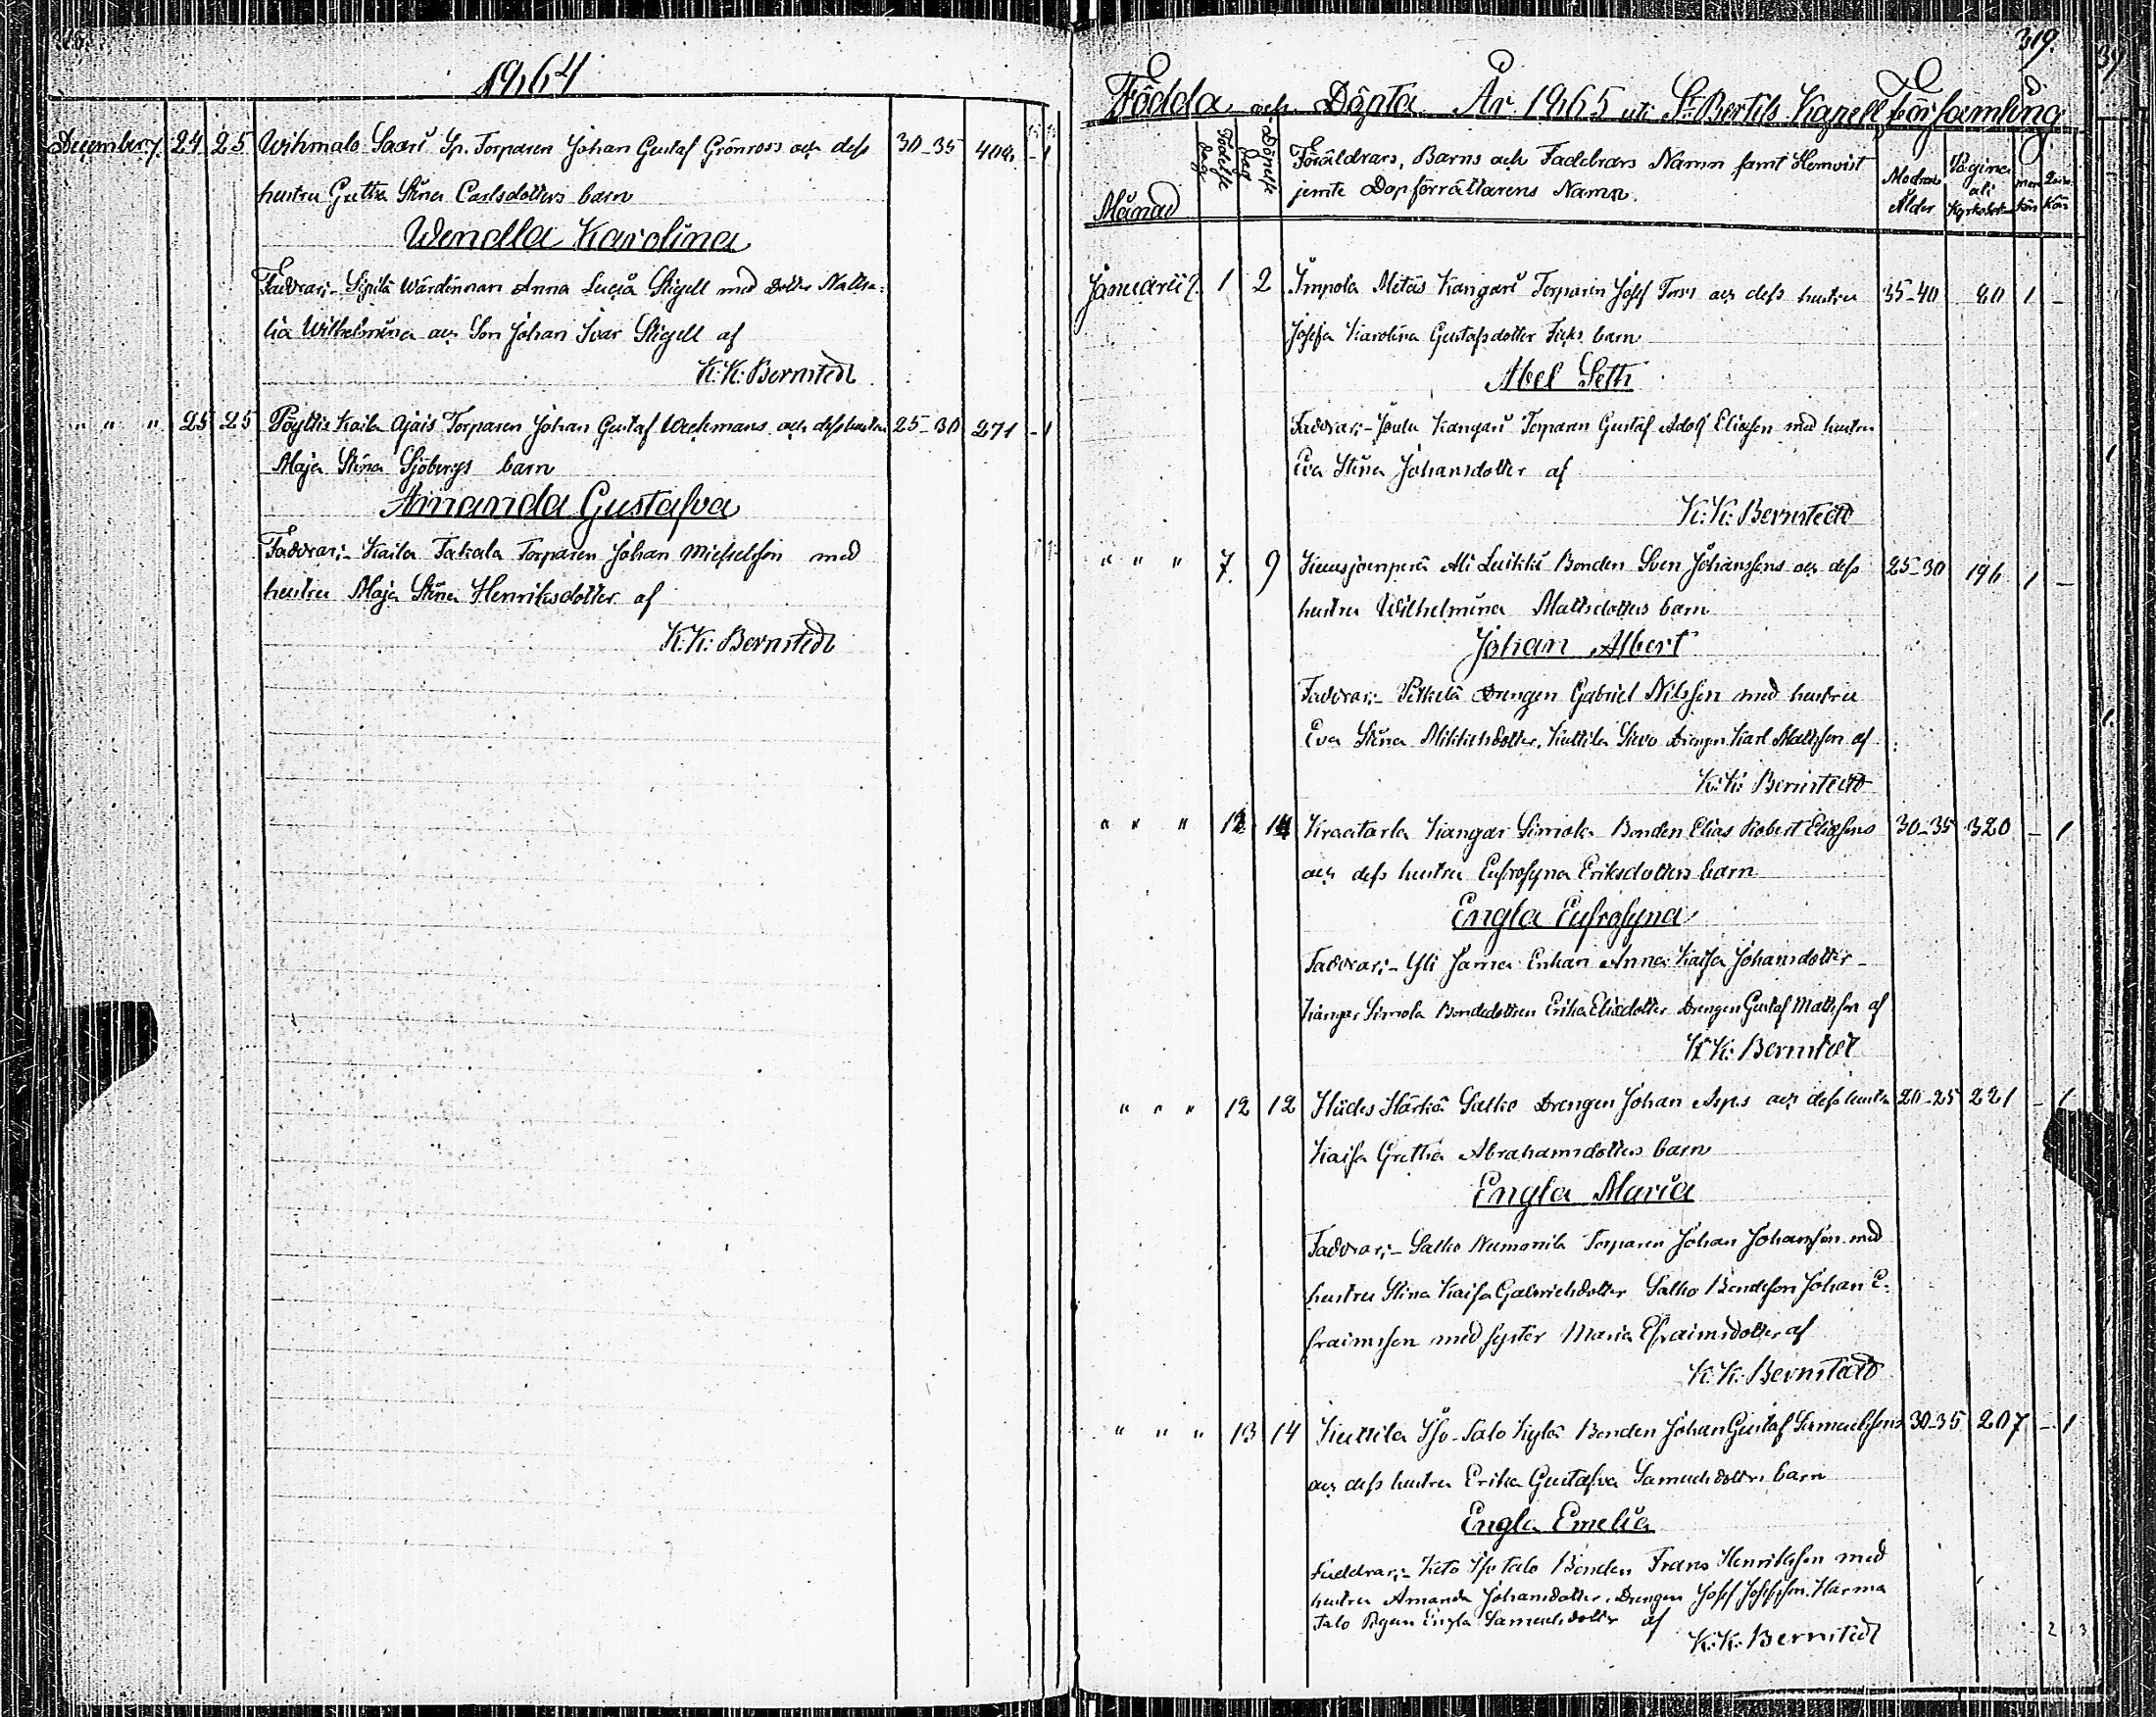 1864
December 24 25 Wihmalo Saari Sp. Torparen Johan Gustaf Grönroos och dess 30-35 404 - 1
hustru Gretha Stina Carlsdotters barn
Wendla Karolina
Faddrar;- Sipilä Wärdinnan Anna Lucia Stigell med dotter Natha-
lia Wilhelmina och Son Johan Ivar Stigell af
K: K: Bernstedt
" " " 25 25 Pöytis Kaila Torparen Johan Gustaf och dess hustru 25-30 271 - 1
Maja Stina Sjöbergs barn
Amanda Gustafva
Faddrar;- Kaila Takala Torparen Johan Michelsson med
hustru Maja Stina Henriksdotter af
K: K: Bernstedt
319.
Födda och Döpta År 1865 uti St Bertils Kapell församling
Månad Födelse dag Döpelse dag Föräldrars, Barns och Faddrars Namn samt Hemvist Modrens Pagina
jemte Dopförrättarens Namn. Ålder uti Kyrkoboken man kön Qvin Kön
Januarii 1 2 Impola Kangari Torparen Josef och dess hustru 35-40 80 1 -
Josefa Karolina Gustafsdotter barn
Abel Seth
Faddrar;- Kangari Torparen Gustaf Adolf Eliasson med hustru
Eva Stina Johansdotter af
K: K: Bernstedt
" " " 7. 9 Ali Bonden Sven Johanssons och dess 25-30 196 1 -
hustru Wilhelmina Mattsdotters barn
Johan Albert
Faddrar;- Drengen Gabriel Nilsson med hustru
Eva Stina Kuttila Drengen Karl Mattsson af
K: K: Bernstedt
" " " 14 Kraatarla Kangar Simola Bonden Elias Robert Eliassons 30-35 320 - 1
och dess hustru Eufrosyna Eriksdotters barn
Engla Eufrosyna
Faddrar;- Yli Enkan Anna Kaisa Johansdotter -
Kangar Simola Bondedottren Erika Eliasdotter Drengen Gustaf Mattsson af
K: K: Bernstedt
" " " 12 12 Härkä Satko Drengen Johan Asps och dess hustru 20-25 221 - 1
Kaisa Gretha Abrahamsdotters barn
Engla Maria
Faddrar;- Satko Torparen Johan Johansson med
hustru Stina Kaisa Gabrielsdotter Satko Bondeson Johan E-
fraimsson med syster Maria Efraimsdotter af
K: K: Bernstedt
" " " 13 14 Kuttila Iso-Talo Kylä Bonden Johan Gustaf Samuelssons 30-35 207 - 1
och dess hustru Erika Gustafva Samuelsdotters barn
Engla Emelia
Faddrar;- Keto Iso talo Bonden Frans Henriksson med
hustru Amanda Johansdotter, Drengen Josef Josefsson. Härmä
Talo Pigan Engla Samuelsdotter af
K: K: Bernstedt
2 3